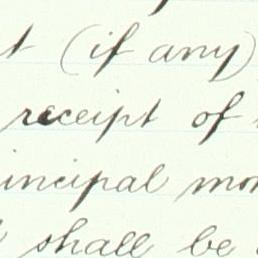 t (if any)
receipt of
incipal mon
shall be